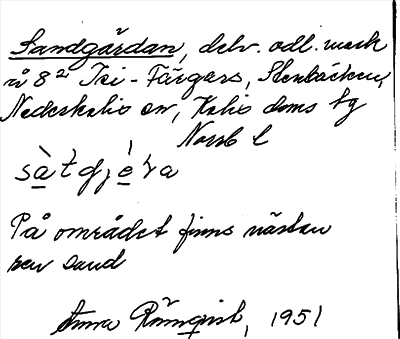 Sandgärdan, delv. odl. mark
å 8² Tri-Färgars, Stenbäcken,
Nederkalix sn, Kalix doms tg
Norrb l
På området finns nästan
ren sand
Anna Rönnqvist, 1951